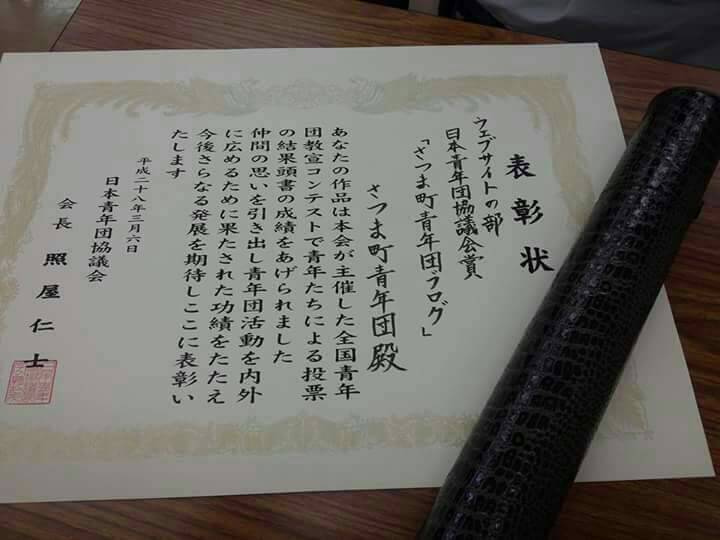 表彰状
ウェブサイトの部
日本青年団協議会賞
「さつま町青年団ブログ」
さつま町青年団殿
あなたの作品は本会が主催した全国青年
団教宣コンテストで青年たちによる投票
の結果頭書の成績をあげられました
仲間の思いを引き出し青年団活動を内外
に広めるために果たされた功績をたたえ
今後さらなる発展を期待しここに表彰い
たします
平成二十八年三月六日
日本青年団協議会
会長 照屋仁士